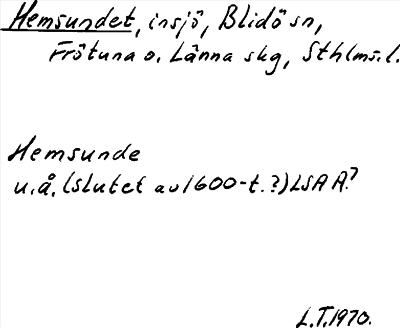 Hemsundet, insjö, Blidö sn,
Frötuna o. Länna skg, Sthlms. l.
Hemsunde
u. å. (slutet av 1600-t.?) LSA A?
L.T. 1970.